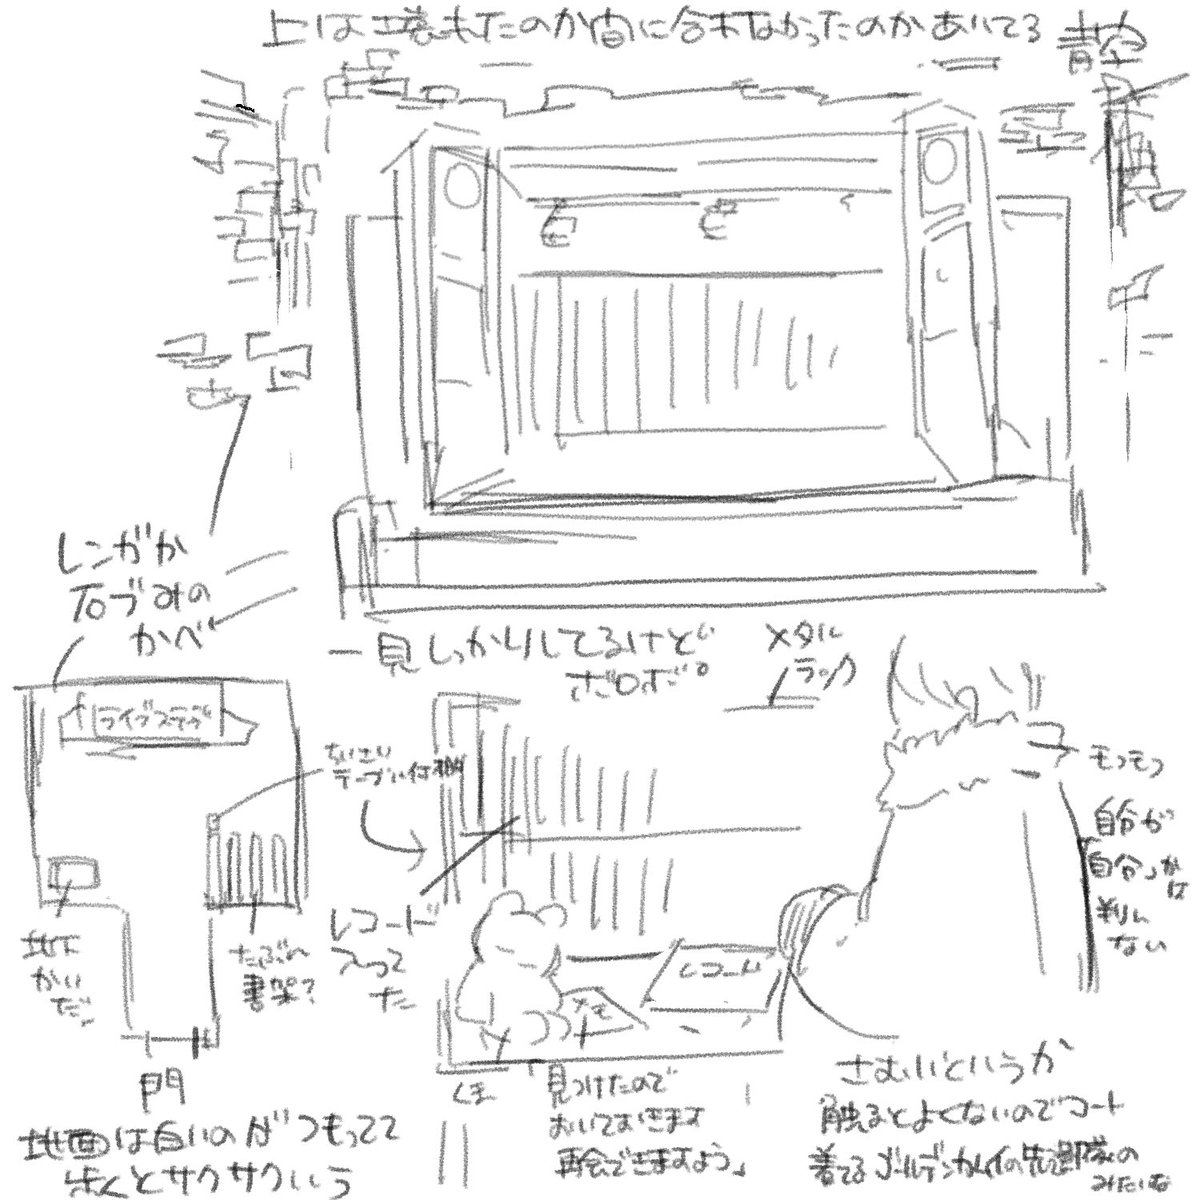 上は壊れたのか間に合わなかったのかあいてる 青空
レンガか
石づみの
かべ
一見しっかりしてるけど
ボロボロ。
メタル
ラック
ライブステージ
ちいさい
テーブル付棚
モフモフ
自分が
自分しか
判んない
レコード
入ってた
レコード
メモ
地下
かいだん
たぶん
書架?
門
くま
「見つけたので
おいておきます
再会できますよう」
さむいというか
触るとよくないのでコート
着てる ゴールデンカムイの先遣隊の
みたいな
地面は白いのがつもってて
歩くとサクサクいう